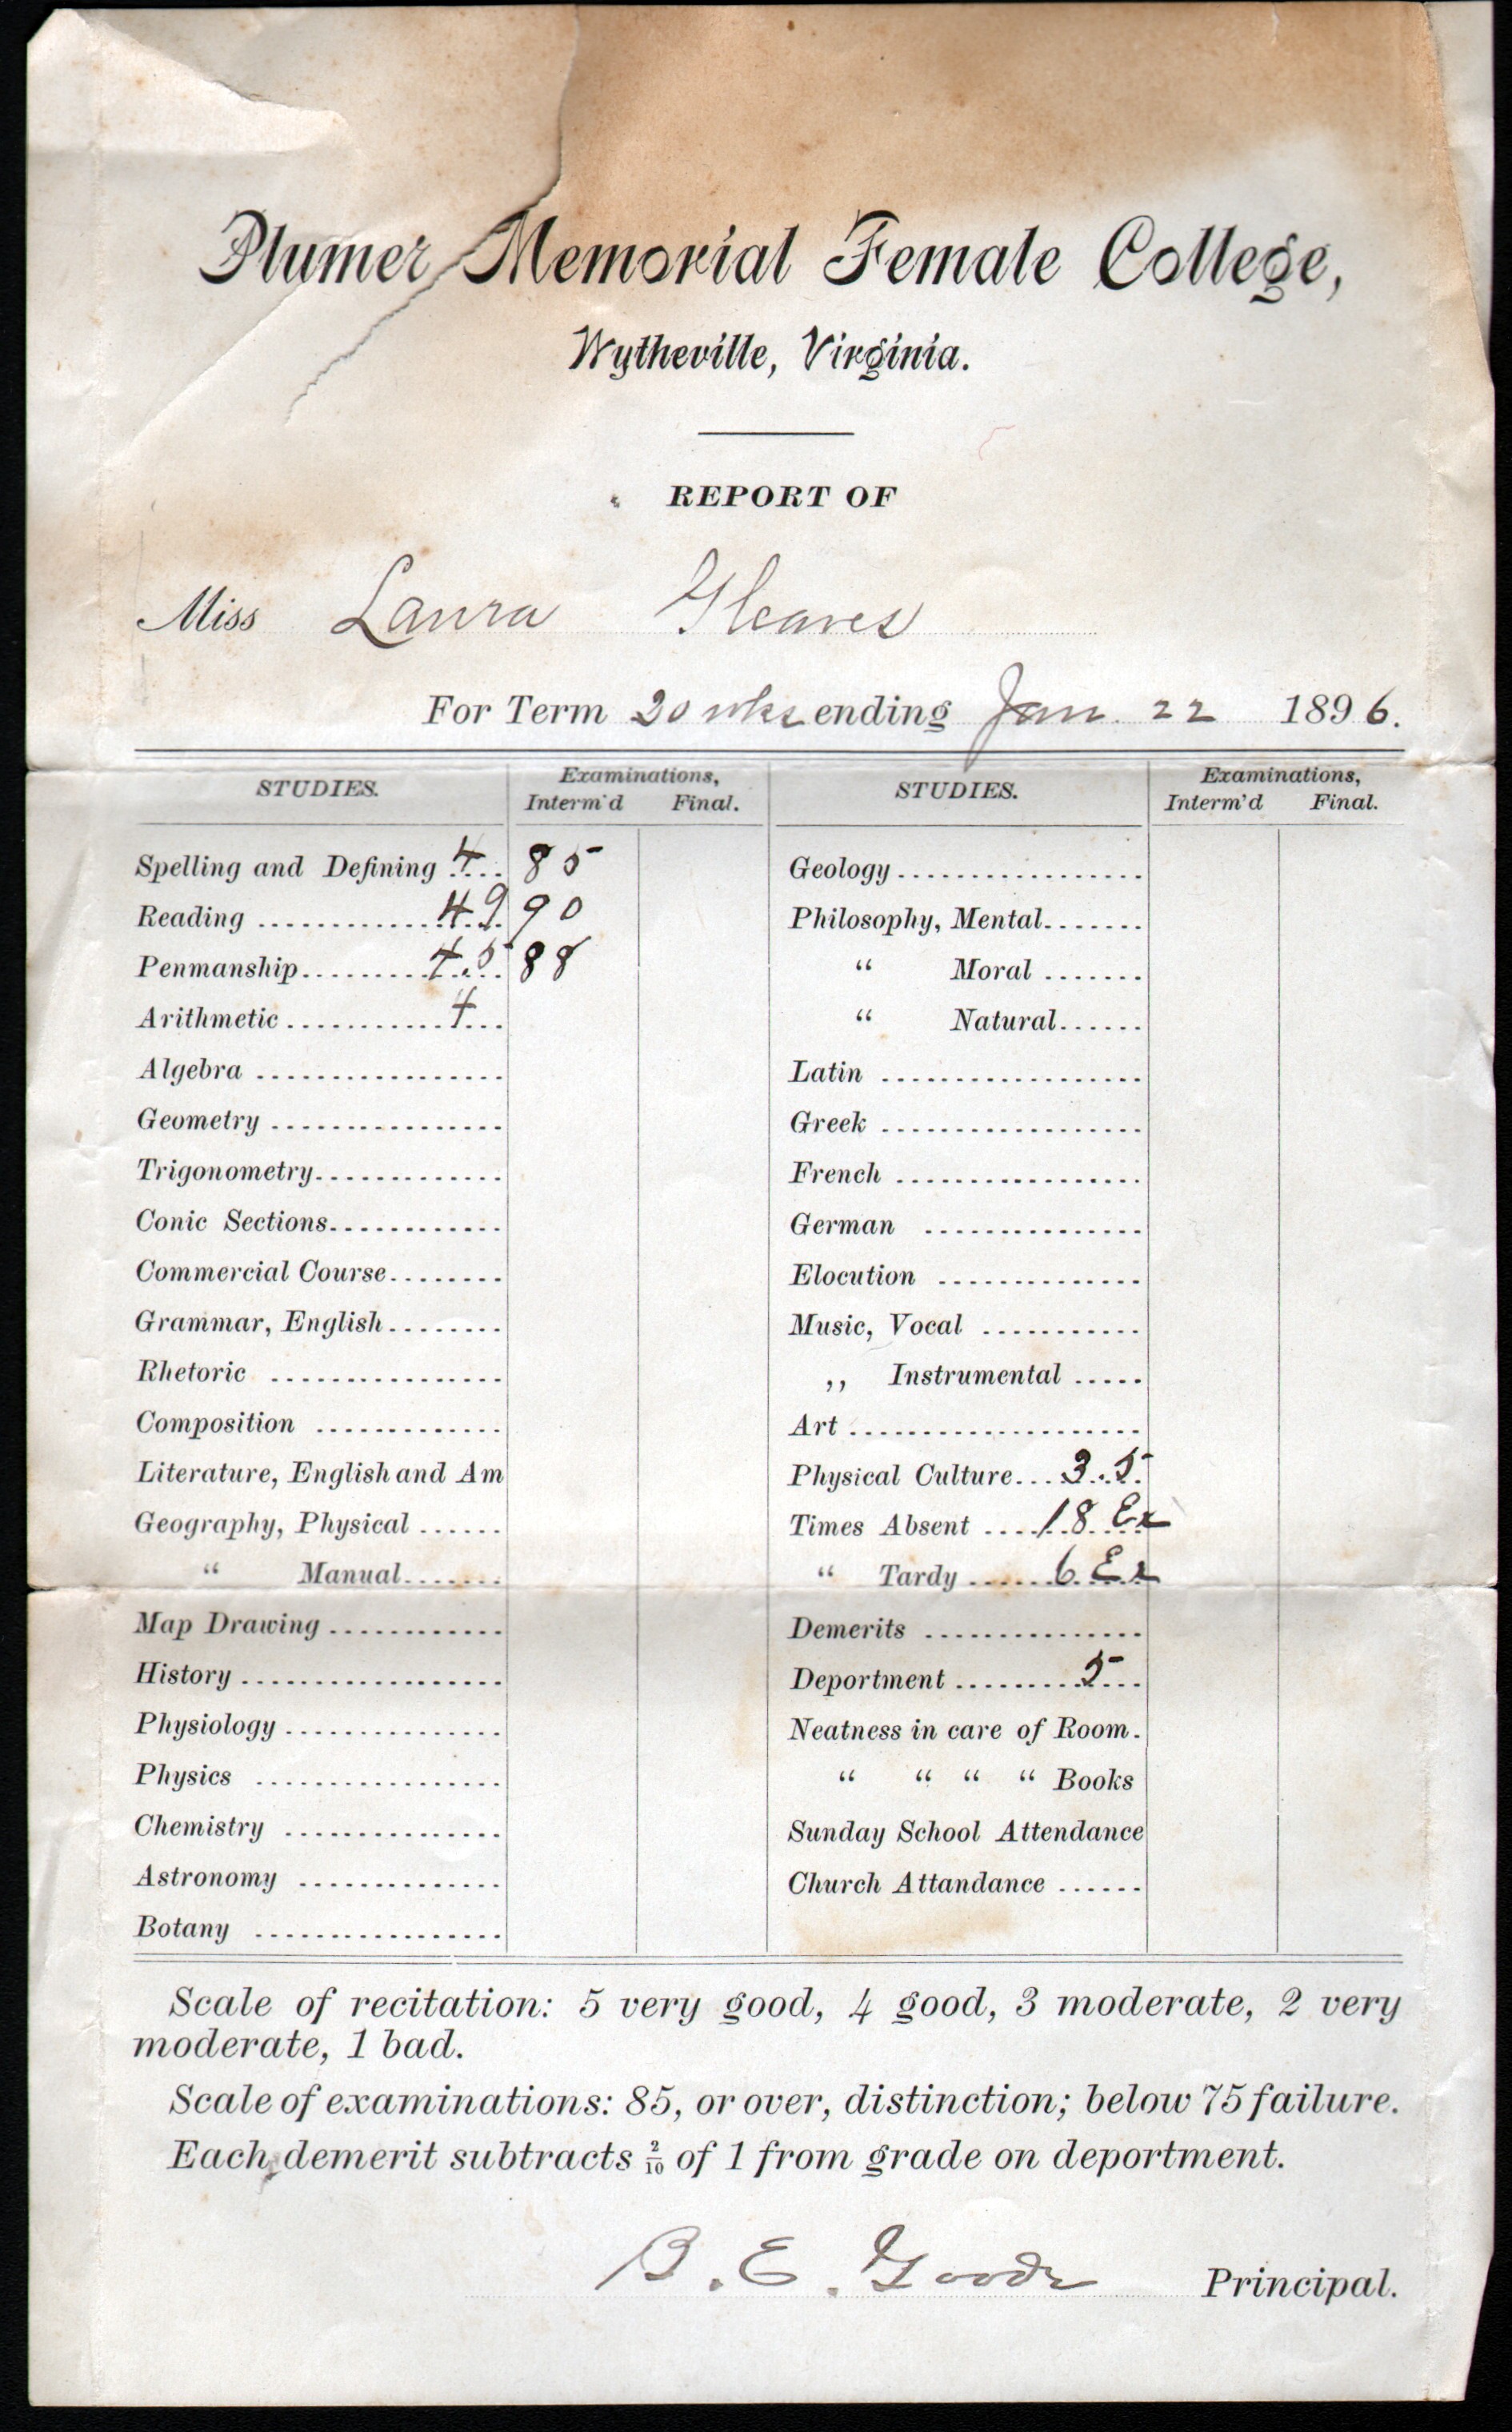 Plumer Memorial Female College,
Wytheville, Virginia.
REPORT OF
Miss Laura Gleaves
For Term 20 wks ending Jan. 22 1896.
STUDIES. Examinations, Interm'd Final. STUDIES. Examinations, Interm'd Final.
Spelling and Defining 4 85 Geology
Reading 4.9 90 Philosophy, Mental
Penmanship 4.5 88 “ Moral
Arithmetic 4 “ Natural
Algebra Latin
Geometry Greek
Trigonometry French
Conic Sections German
Commercial Course Elocution
Grammar, English Music, Vocal
Rhetoric ,, Instrumental
Composition Art
Literature, English and Am Physical Culture 3.5
Geography, Physical Times Absent 18 Ex
“ Manual “ Tardy 6 Ex
Map Drawing Demerits
History Deportment 5
Physiology Neatness in care of Room.
Physics “ “ “ “ Books
Chemistry Sunday School Attendance
Astronomy Church Attandance
Botany
Scale of recitation: 5 very good, 4 good, 3 moderate, 2 very
moderate, 1 bad.
Scale of examinations: 85, or over, distinction; below 75 failure.
Each demerit subtracts 2/10 of 1 from grade on deportment.
B. E. Goode Principal.